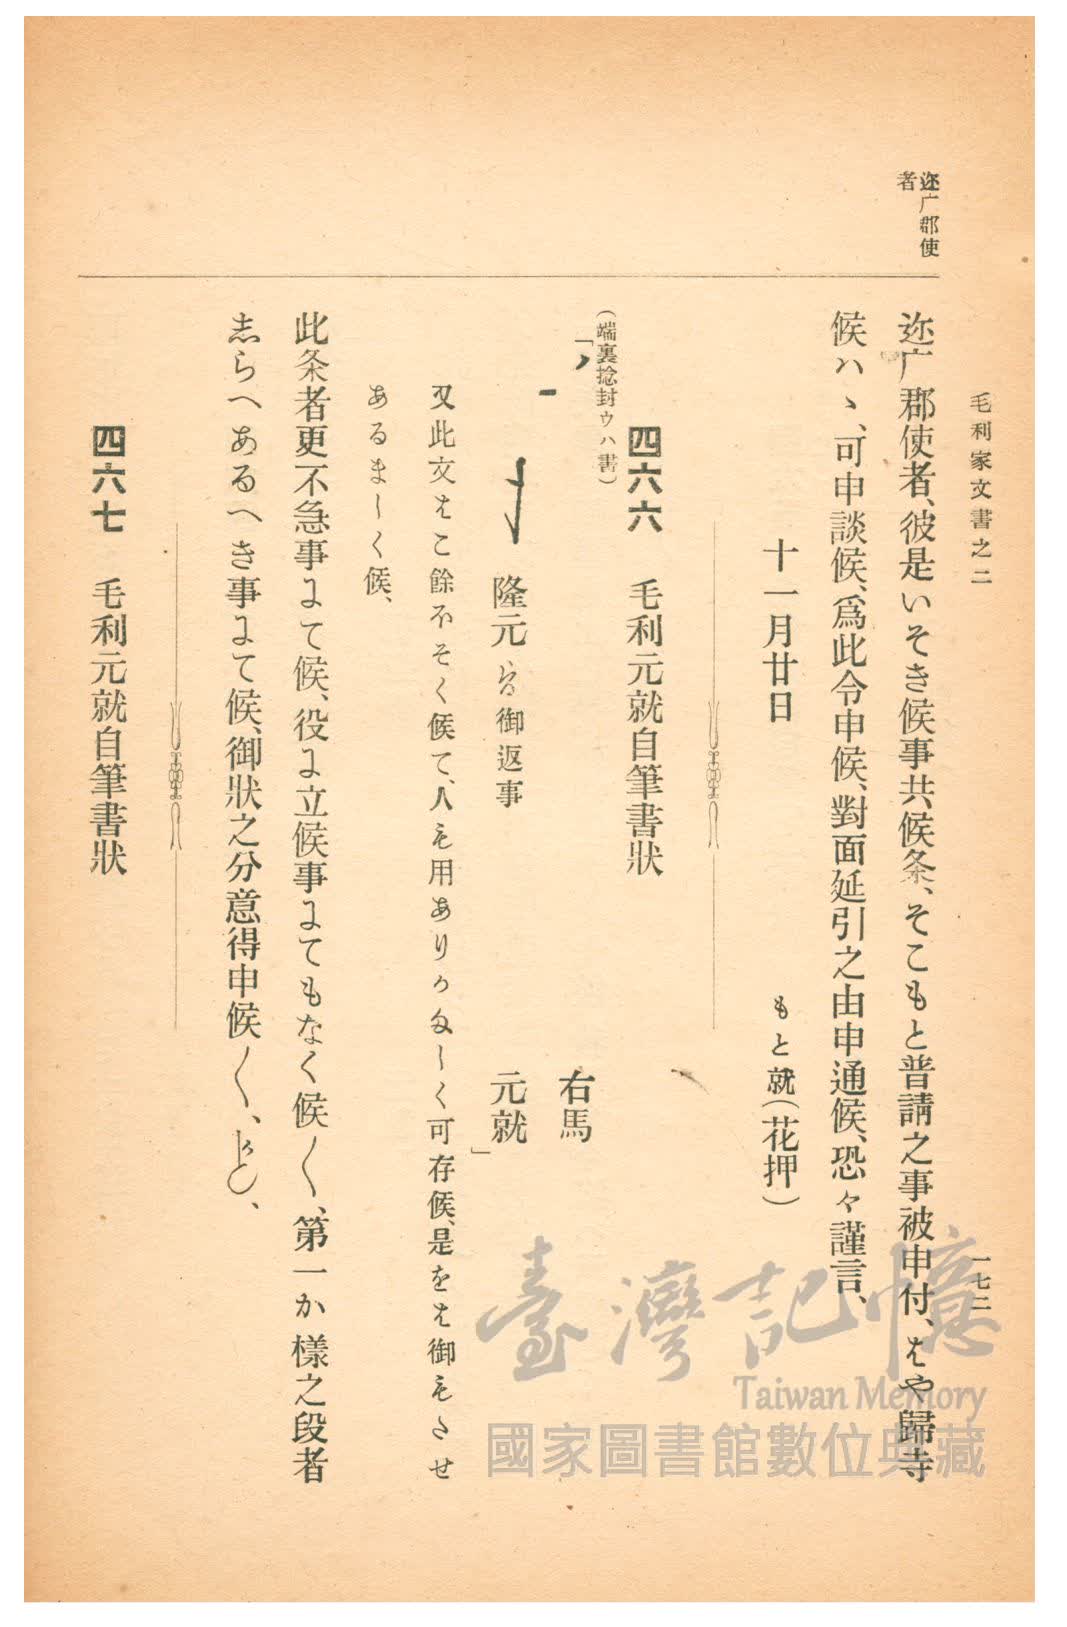 毛利家文書之二
一七二
迩广郡使
者
迩广郡使者、彼是いそき候事共候条、そこもと普請之事被申付、はや歸寺
候ハヽ、可申談候、爲此令申候、對面延引之由申通候、恐々謹言、
十一月廿日
もと就(花押)
四六六 毛利元就自筆書狀
(端裏捻封ウハ書)
「
右馬
隆元 御返事 元就」
又此文はこ餘ほそく候て、人も用ありかたしく可存候、是をは御もたせ
あるましく候、
此条者更不急事にて候、役に立候事にてもなく候〱、第一か樣之段者
志らへあるへき事にて候、御狀之分意得申候〱、
四六七 毛利元就自筆書狀
臺灣記憶
Taiwan Memory
國家圖書館數位典藏